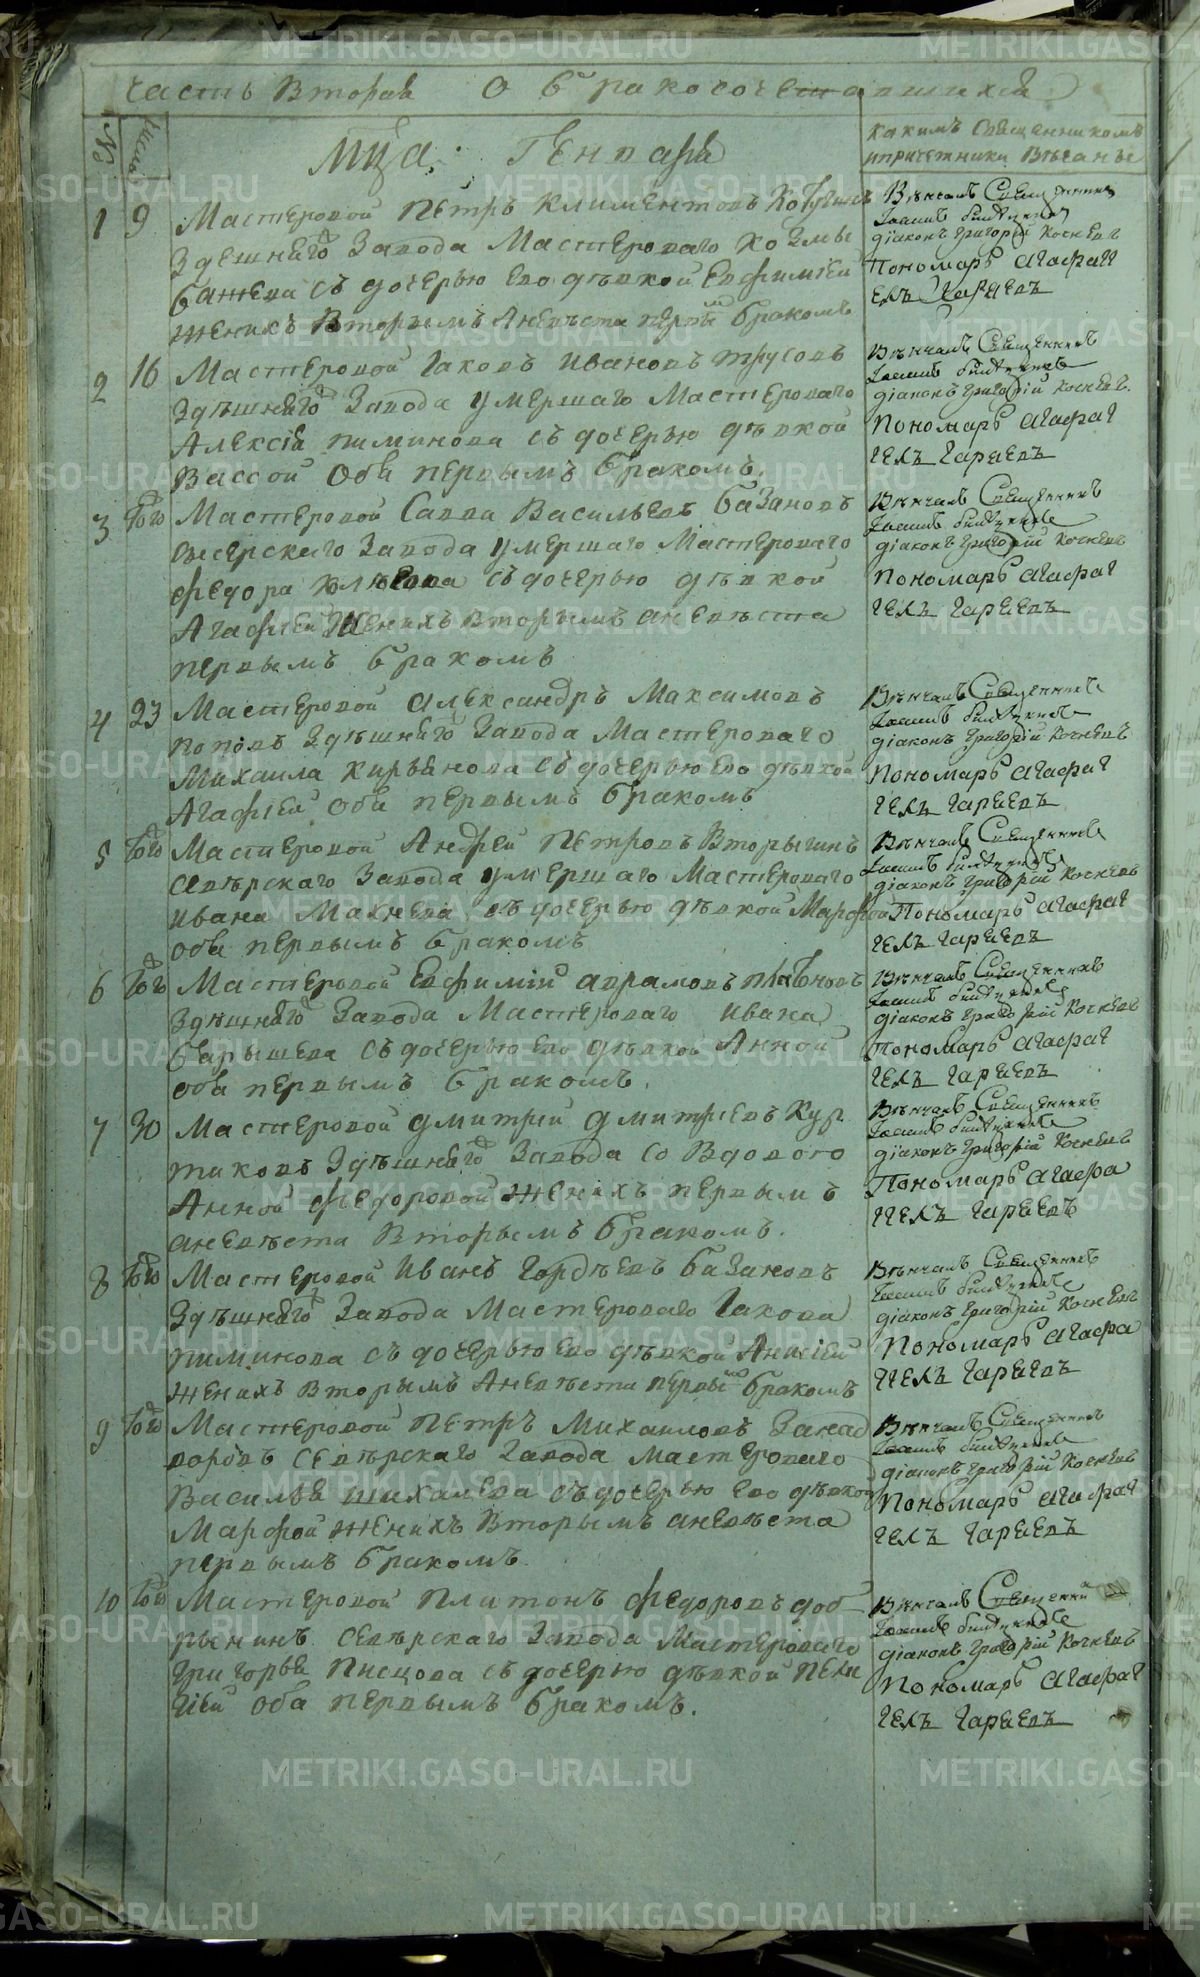 Часть Вторая О бракосочетавшихся
№
Число
Мца: Генваря
какимъ Священникомъ
и причетники Венчаны
1 9 Мастеровой Петръ Климентовъ
Здешняго Завода Мастероваго Козмы
Бажева съ дочерью ево девкой Евфимiей
женихъ Вторымъ а невеста первы бракомъ
Венчалъ Священникъ
Iоаннъ
дiаконъ Григорiй Кочневъ
Пономарь Агафан
гелъ Гаряевъ
2 16 Мастеровой Iаковъ Ивановъ Трусовъ
Здѣшняго Завода умершаго Мастероваго
Алексiя Пиминова съ дочерью дѣвкой
Вассой Оба первымъ бракомъ.
Вѣнчалъ Священникъ
Iоаннъ
дiаконъ Григорiй Кочневъ
Пономарь Агафан
гелъ Гаряевъ
3 Того Мастеровой Савва Васильевъ Базановъ
Сысерскаго Завода умершаго Мастероваго
Федора съ дочерью дѣвкой
Агафiей Женихъ Вторымъ а невѣста
первымъ бракомъ
Вѣнчалъ Священникъ
Iоаннъ
дiаконъ Григорiй Кочневъ
Пономарь Агафан
гелъ Гаряевъ
4 23 Мастеровой Александръ Максимовъ
Поповъ Здѣшняго Завода Мастероваго
Михаила Кирьянова съ дочерью ево дѣвкой
Агафiей Оба первымъ бракомъ
Вѣнчалъ Священникъ
Iоаннъ
дiаконъ Григорiй Кочневъ
Пономарь Агафан
гелъ Гаряевъ
5 Того Мастеровой Андрей Петровъ Вторыгинъ
Сѣверскаго Завода умершаго Мастероваго
Ивана Махнева съ дочерью дѣвкой Марфой
оба первымъ бракомъ
Вѣнчалъ Священникъ
Iоаннъ
дiаконъ Григорiй Кочневъ
Пономарь Агафан
гелъ Гаряевъ
6 Того Мастеровой Евфимiй Аврамовъ
Здѣшняго Завода Мастероваго Ивана
Барышева съ дочерью ево дѣвкой Анной
оба первымъ бракомъ.
Вѣнчалъ Священникъ
Iоаннъ
дiаконъ Григорiй Кочневъ
Пономарь Агафан
гелъ Гаряевъ
7 30 Мастеровой Дмитрiй Дмитрiевъ Кур
тиковъ Здѣшняго Завода со Вдовою
Анной Федоровой Женихъ первымъ
а невѣста Вторымъ бракомъ.
Вѣнчалъ Священникъ
Iоаннъ
дiаконъ Григорiй Кочневъ
Пономарь Агафа
нгелъ Гаряевъ
8 Того Мастеровой Иванъ Гордѣевъ Базановъ
Здѣшняго Завода Мастероваго Iакова
Пиминова съ дочерью ево дѣвкой Анисiей
женихъ Вторымъ а невѣста первы бракомъ
Вѣнчалъ Священникъ
Iоаннъ
дiаконъ Григорiй Кочневъ
Пономарь Агафа
нгелъ Гаряевъ
9 Того Мастеровой Петръ Михаиловъ Занад
воровъ Сѣверскаго Завода Мастероваго
Василья Шихалева съ дочерью ево дѣвкой
Марфой женихъ Вторымъ а невѣста
первымъ бракомъ
Вѣнчалъ Священникъ
Iоаннъ
дiаконъ Григорiй Кочневъ
Пономарь Агафан
гелъ Гаряевъ
10 Того Мастеровой Платонъ Федоровъ Доб
рынинъ Сѣверскаго Завода Мастероваго
Григорья Писцова съ дочерью дѣвкой Пела
гiей оба первымъ бракомъ.
Вѣнчалъ Священни
Iоаннъ
дiаконъ Григорiй Кочневъ
Пономарь Агафан
гелъ Гаряевъ
METRIKI.GASO-URAL.RU